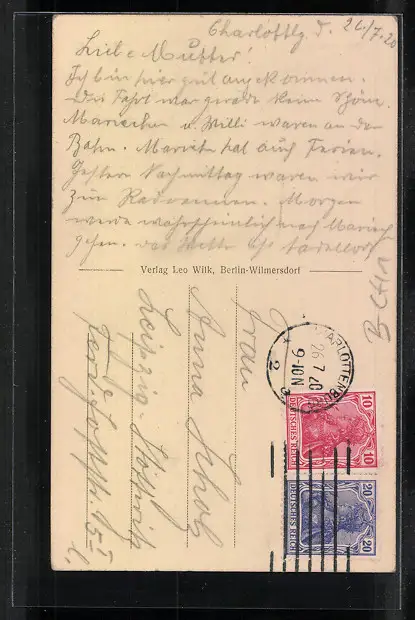 Charlottbg d. 26./7.20
Liebe Mutter!
Ich bin hier gut angekommen.
Die Fahrt war gerade keine Schöne.
Mariechen u. Willi waren an der
Bahn. Mariech hat auch Ferien.
Gestern Nachmittag waren wir
zum Radrennen. Morgen
werde wahrscheinlich nach Mariech
gehen. Das Wetter ist tadellos
Verlag Leo Wilk, Berlin-Wilmersdorf
Frau
Anna Scholz
Leipzig-Stötteritz
15 I
B-CH1
CHARLOTTENBURG
26.7.20
9-10N
2
10 10
DEUTSCHES REICH
20 20
DEUTSCHES REICH